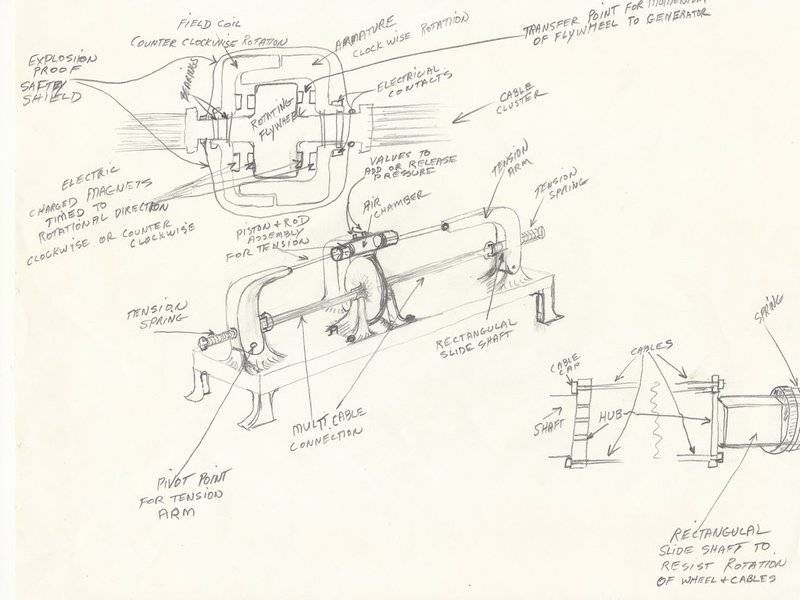 FIELD COIL
COUNTER CLOCKWISE ROTATION
ARMATURE
CLOCKWISE ROTATION
TRANSFER POINT FOR MOMENTUM
OF FLYWHEEL TO GENERATOR
EXPLOSION
PROOF
SAFTEY
SHIELD
BEARINGS
ROTATING
FLYWHEEL
ELECTRICAL
CONTACTS
CABLE
CLUSTER
ELECTRIC
CHARGED MAGNETS
TIMED TO
ROTATIONAL DIRECTION
CLOCKWISE OR COUNTER
CLOCKWISE
VALUES TO
ADD OR RELEASE
PRESSURE
AIR
CHAMBER
TENSION
ARM
TENSION
SPRING
PISTON & ROD
ASSEMBLY
FOR TENSION
TENSION
SPRING
RECTANGULAR
SLIDE SHAFT
MULTI CABLE
CONNECTION
PIVOT POINT
FOR TENSION
ARM
SPRING
CABLE
CAP
CABLES
SHAFT
HUB
RECTANGULAR
SLIDE SHAFT TO
RESIST ROTATION
OF WHEEL & CABLES